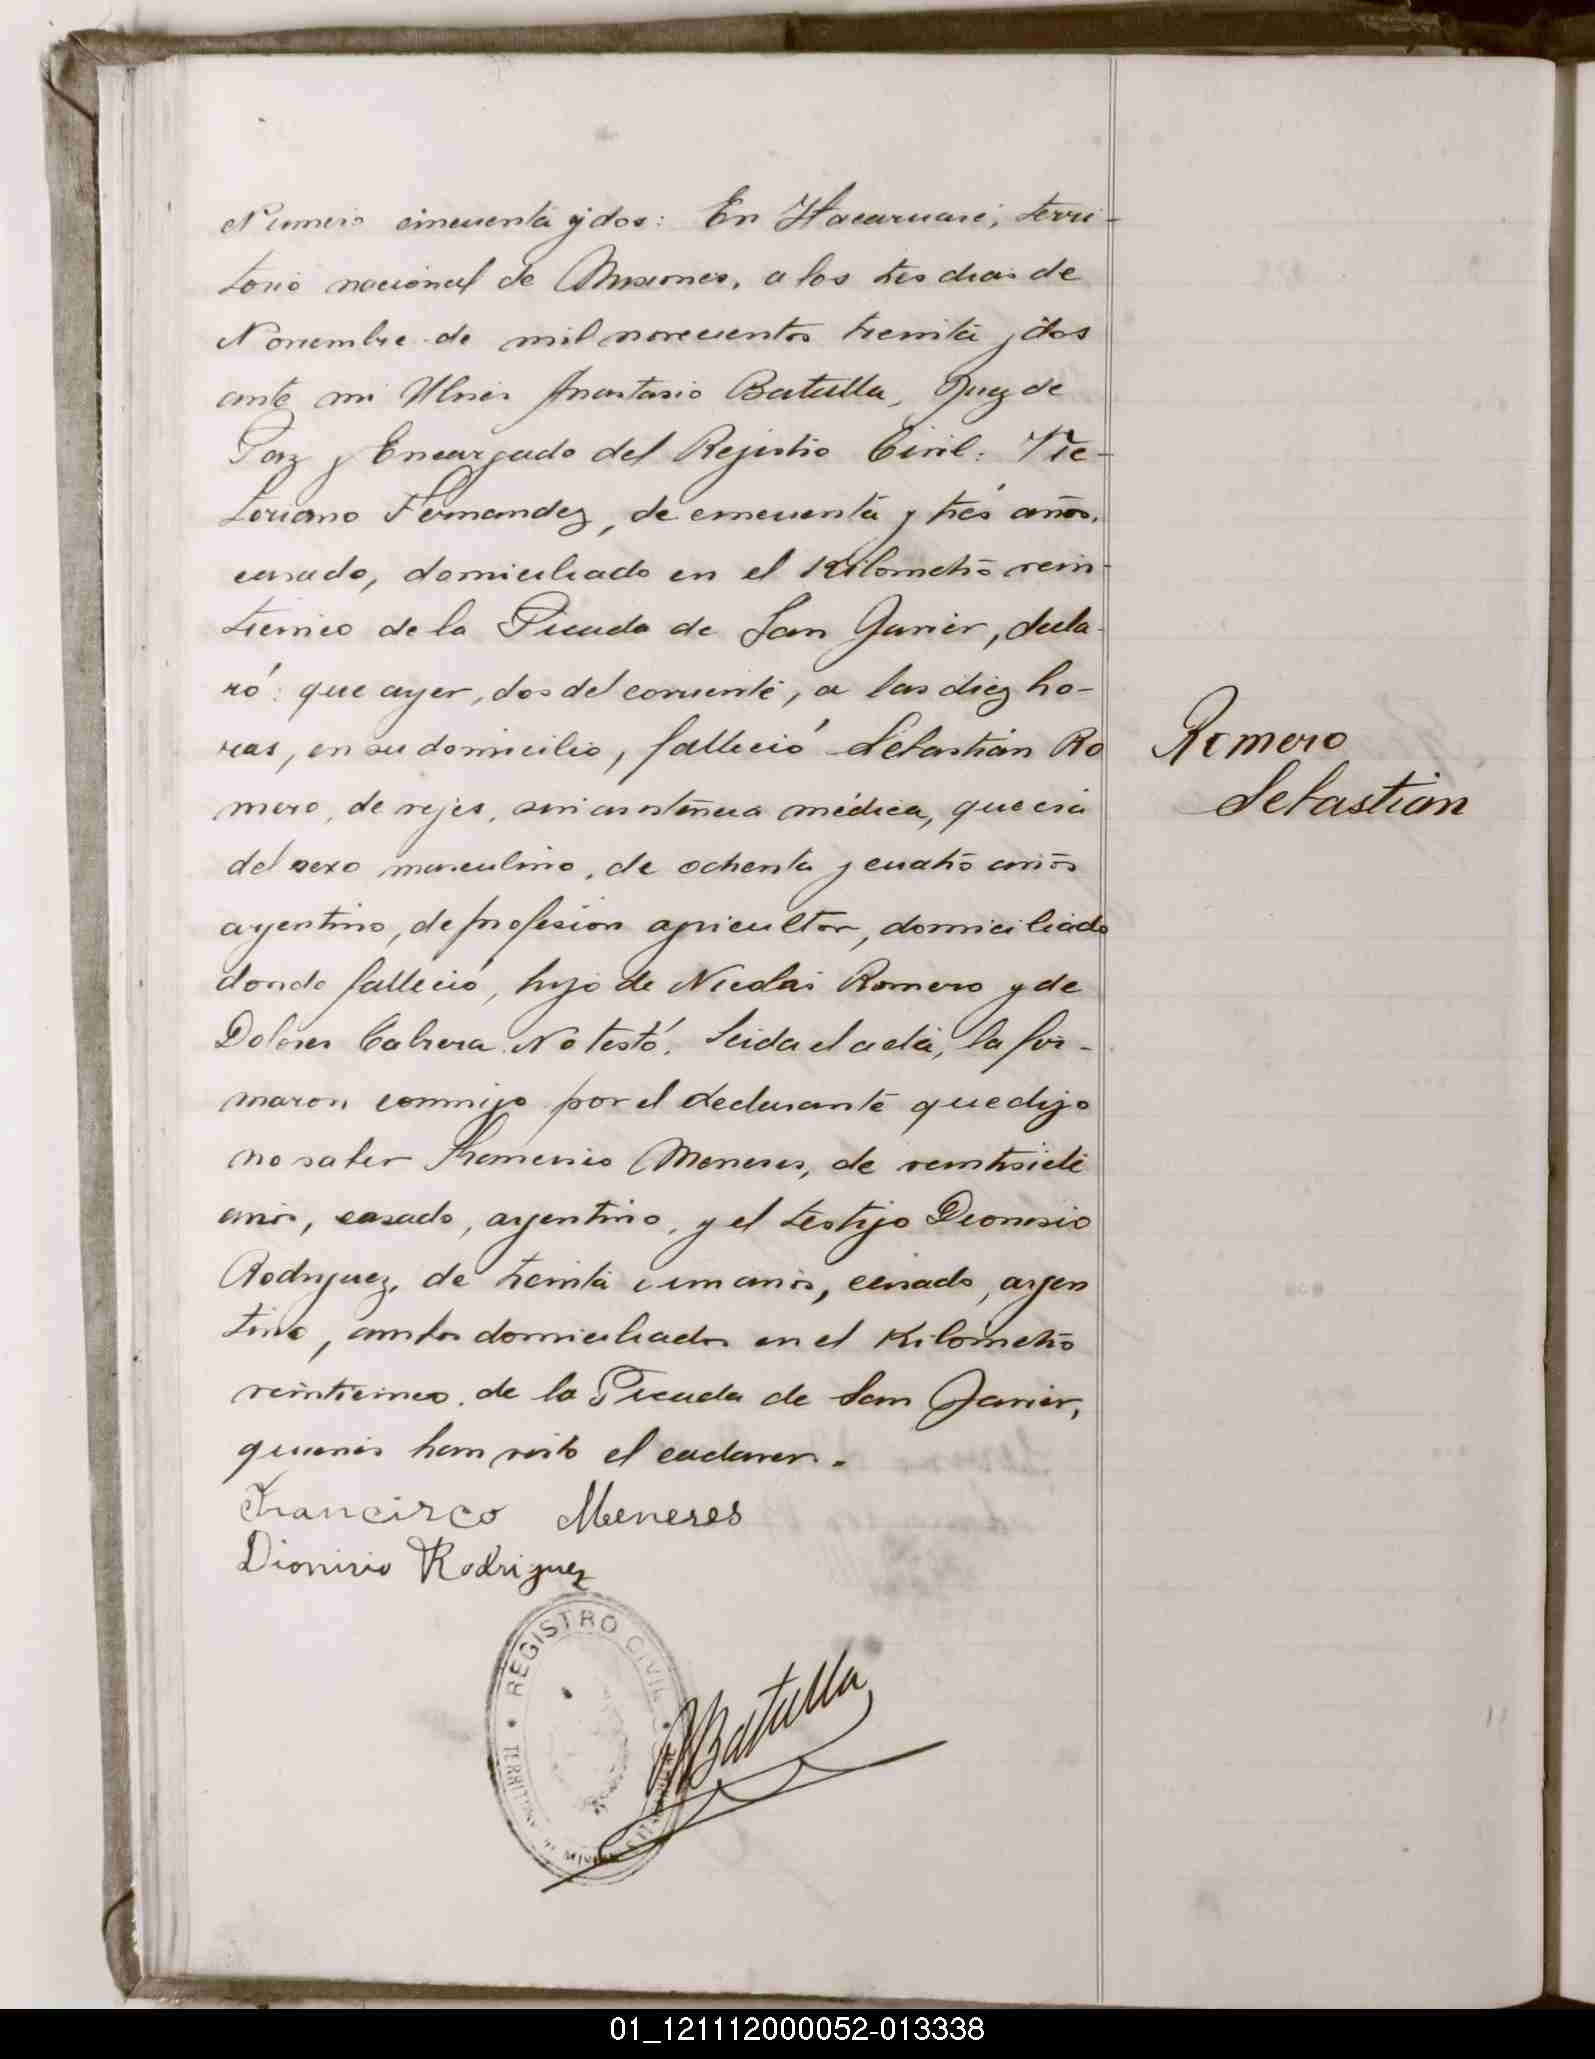 Numero cincuenta y dos: En Itacaruaré, terri-
torio nacional de Misiones, a los tres dias de
Noviembre de mil novecientos treinta y dos
ante mi Ulises Anastasio Batulla, Juez de
Paz y Encargado del Rejistro Civil: Vic-
toriano Fernandez, de cincuenta y trés años,
casado, domiciliado en el Kilometro vein-
ticinco de la Picada de San Javier, decla-
ró: que ayer, dos del corriente, a las diez ho-
ras, en su domicilio, falleció Sebastián Ro
mero, de vejes, sin asistencia médica, que era
del sexo masculino, de ochenta y cuatro años
argentino, de profesión agricultor, domiciliado
donde falleció, hijo de Nicolás Romero y de
Dolores Cabrera. No testó. Leida el acta, la fir-
maron conmigo por el declarante que dijo
no saber Francisco Meneses, de veintisiete
años, casado, argentino, y el testigo Dionisio
Rodriguez, de treinta i un años, casado, argen
tino, ambos domiciliados en el Kilometro
veinticinco de la Picada de San Javier,
quienes han visto el cadaver.
Francisco Meneses
Dionisio Rodriguez
REGISTRO CIVIL
TERRITORIO DE MISIONES
Batulla
Romero
Sebastián
01_121112000052-013338